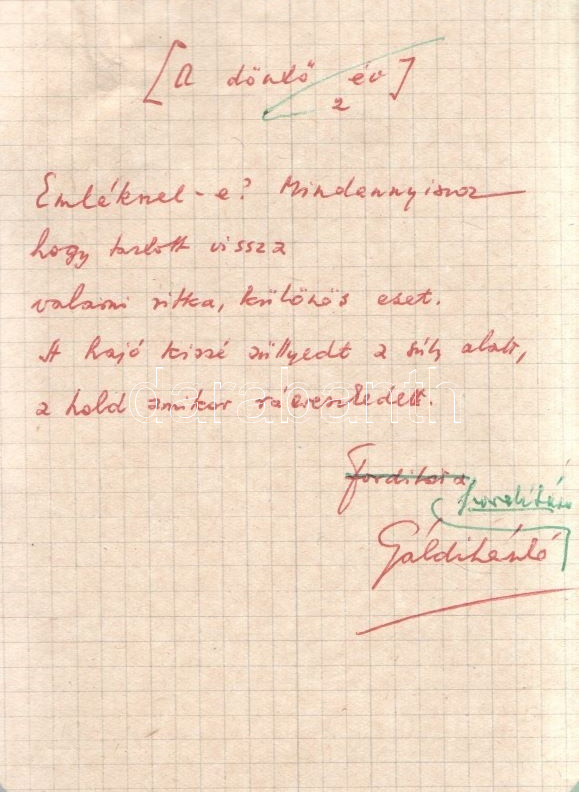 [A döntő év]
2
Emlékszel-e? Mindannyiszor
hogy tartott vissza
valami ritka, különös eset.
A hajó kissé süllyedt a súly alatt,
a hold amikor ráereszkedett.
Fordította
Gáldi László
darabanth